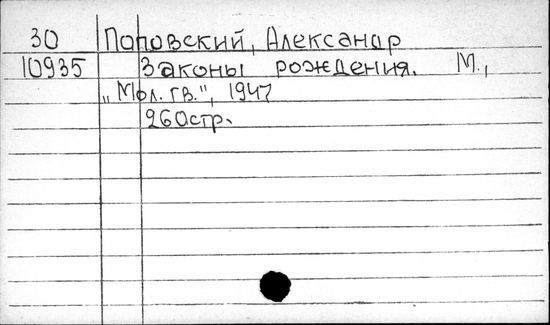 30 Поповский, Александр
10935 Законы рождения. М.,
„Мол. гв.", 1947
260стр.